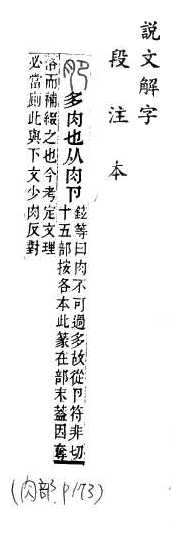 說文解字
段注本
多肉也从肉卪
鉉等曰肉不可過多故從卪符非切
十五部按各本此篆在部末蓋因奪
落而補綴之也今考定文理
必當廁此與下文少肉反對
(肉部 P173)